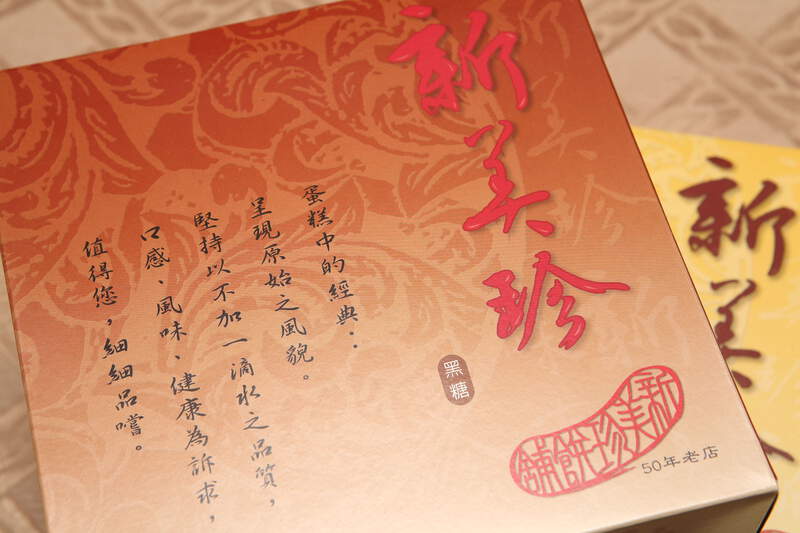 新美珍
蛋糕中的經典：
呈現原始之風貌。
堅持以不加一滴水之品質，
口感、風味、健康為訴求，
值得您，細細品嚐。
黑糖
新美珍餅舖
50年老店
新美珍